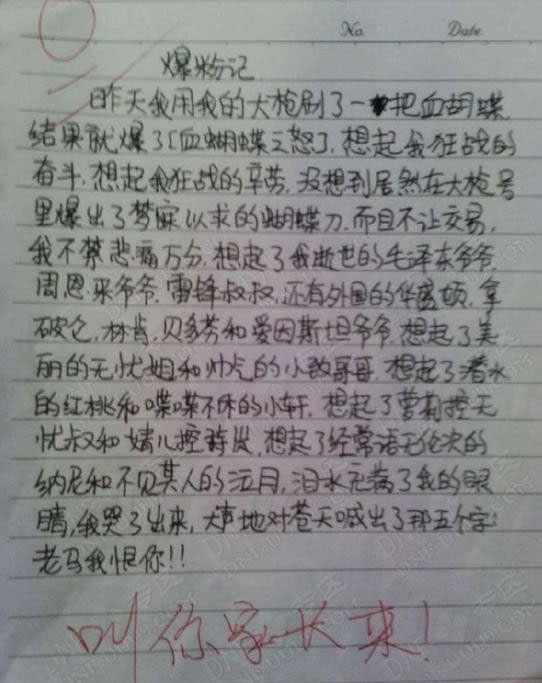 No.  Date
爆粉记
昨天我用我的大枪刷了一把血蝴蝶
结果就爆了[血蝴蝶之怒],想起我狂战的
奋斗,想起我狂战的辛劳,没想到居然在大枪号
里爆出了梦寐以求的蝴蝶刀,而且不让交易,
我不禁悲痛万分,想起了我逝世的毛泽东爷爷,
周恩来爷爷,雷锋叔叔,还有外国的华盛顿,拿
破仑,林肯,贝多芬和爱因斯坦爷爷,想起了美
丽的无忧姐和帅气的小敌哥哥,想起了潜水
的红桃和喋喋不休的小轩,想起了萝莉控无
忧叔和婧儿控,想起了经常语无伦次的
纳尼和不见其人的沄月,泪水充满了我的眼
睛,我哭了出来,大声地对苍天喊出了那五个字:
老马我恨你!!
叫你家长来!